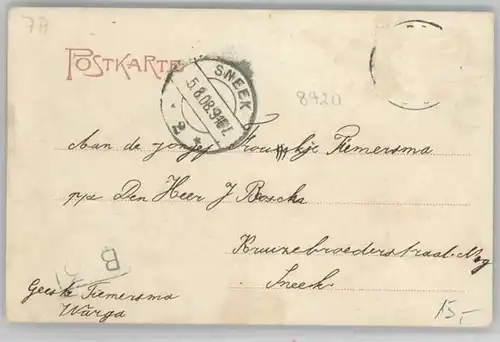 77
POSTKARTE
SNEEK
5.8.08.9
2
8920
Aan de jongej Trouwkje Tiemersma
p/a Den Heer J Boscha
Kruizebroederstraat
Sneek
B
Geeske Tiemersma
Warga
15,-